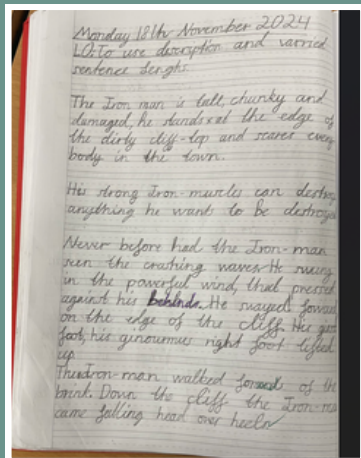 Monday 18th November 2024
LO:To use description and varried
sentence lenghs.
The Iron man is tall, chunky and
damaged, he stands at the edge of
the dirty cliff-top and scares every
body in the town.
His strong Iron-muscles can destroy
anything he want to be destroyed
Never before had the Iron-man
seen the crashing waves. He swung
in the powerful wind, that pressed
against his behinde. He swayed foward
on the edge of the cliff. His great
foot, his ginourmus right foot lifted
up.
The Iron-man walked forwards of the
brink. Down the cliff the Iron-man
came falling head over heels